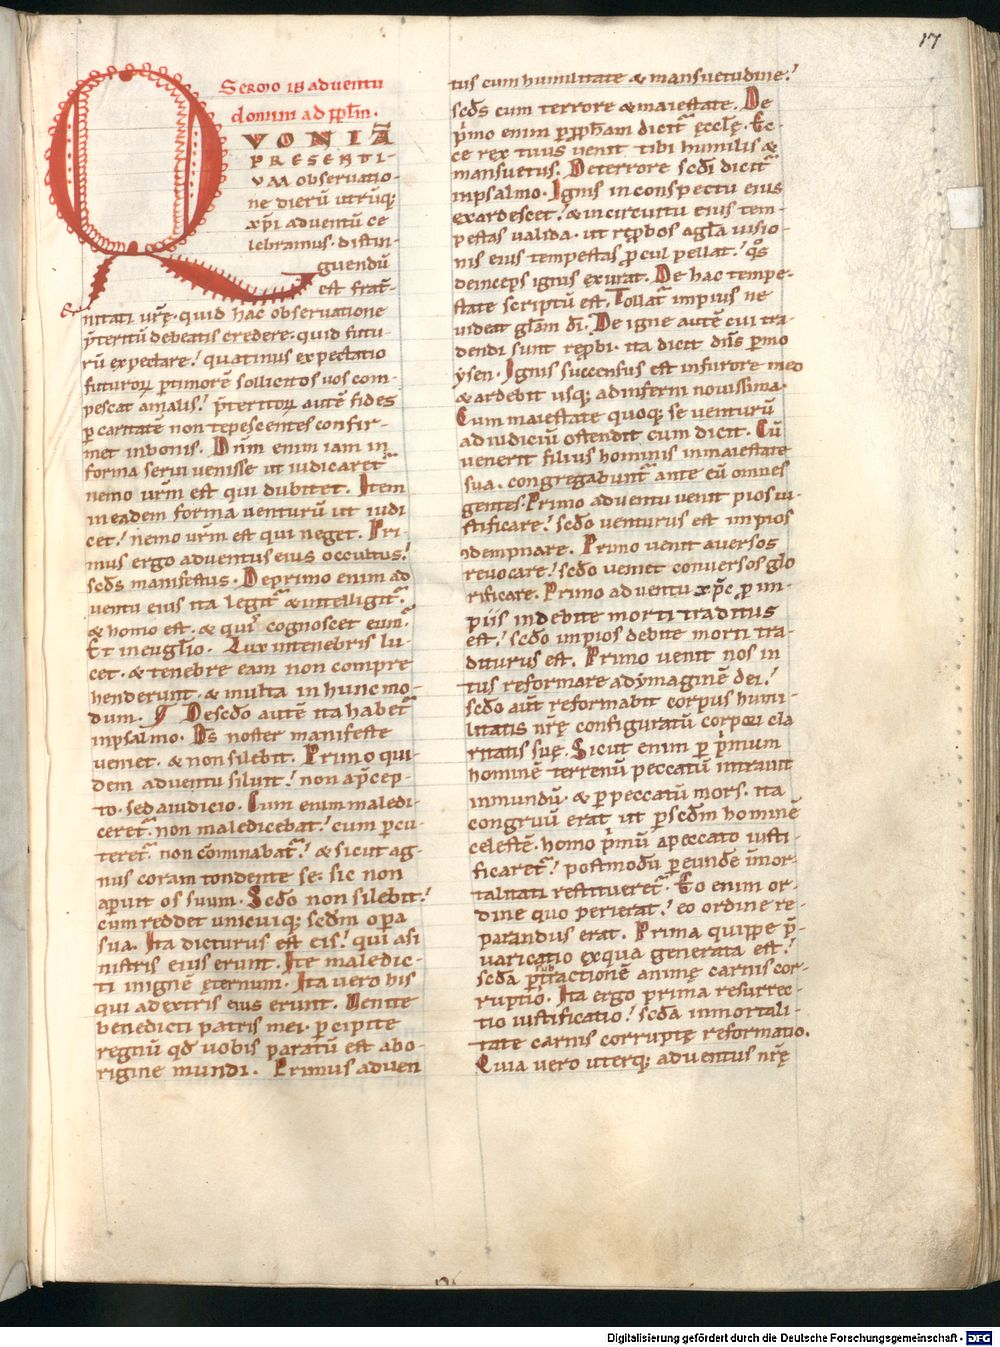 17
Sermo in adventu
domini ad ppl̄m.
QVONIĀ
PRESENTI-
VM observatio-
ne dierū utrūq;
xp̄i adventū ce
lebramus. distin-
guendū
est frat̄-
nitati ur̄ę. quid hac observatione
p̄teritū debeatis credere. quid futu-
rū expectare! quatinus expectatio
futuroꝝ ꝑ timorē sollicitos vos com-
pescat a malis! p̄teritoꝝ autē fides
ꝑ caritatē non tepescentes confir-
met in bonis. Dn̄m enim iam in
forma servi venisse ut iudicaret᷑
nemo ur̄m est qui dubitet. Item
in eadem forma venturū ut iudi
cet! nemo ur̄m est qui neget. Pri-
mus ergo adventus eius occultus!
sc̄ds manifestus. De primo enim ad
ventu eius ita legit᷑ & intelligit᷑.
& homo est. & quis cognoscet eum?
Et in euḡlio. Lux in tenebris lu-
cet. & tenebre eam non compre
henderunt. & multa in hunc mo-
dum. ¶ De sc̄do autē ita habet᷑
in psalmo. Ds̄ noster manifeste
veniet. & non silebit. Primo qui-
dem adventu siluit! non a p̄cep-
to. sed a iudicio. Cum enim maledi-
ceret᷑. non maledicebat! cum ꝑcu-
teret᷑. non cōminabat᷑! & sicut ag-
nus coram tondente se: sic non
aperuit os suum. Sc̄do non silebit!
cum reddet unicuiq; sc̄dm opera
sua. Ita dicturus est eis! qui a si
nistris eius erunt. Ite maledic-
ti in ignē ęternum. Ita vero his
qui a dextris eius erunt. Venite
benedicti patris mei. ꝑcipite
regnū qd̄ vobis paratū est ab o-
rigine mundi. Primus adven
tus cum humilitate & mansuetudine!
sc̄ds cum terrore & maiestate. De
p̄mo enim ꝑ pph̄am dicit᷑ ęcclę. Ec-
ce rex tuus venit tibi humilis &
mansuetus. De terrore sc̄di dicit᷑
in psalmo. Ignis in conspectu eius
exardescet! & in circuitu eius tem-
pestas valida. ut rep̄bos a gl̄a visio-
nis eius tempestas ꝓcul pellat! q̄s
deinceps ignis exurat. De hac tempe-
state scriptū est. Tollat᷑ impius ne
videat gl̄am dī. De igne autē cui tra-
dendi sunt rep̄bi. ita dicit dn̄s ꝑ mo
ysen. Ignis succensus est in furore meo
& ardebit usq; ad inferni novissima.
Cum maiestate quoq; se venturū
ad iudiciū ostendit cum dicit. Cū
venerit filius hominis in maiestate
sua. congregabunt᷑ ante eū omnes
gentes. Primo adventu venit pios iu-
stificare! sc̄do venturus est impios
ꝯdempnare. Primo venit aversos
revocare! sc̄do veniet conversos glo
rificare. Primo adventu xp̄c ꝓ im-
piis indebite morti traditus
est! sc̄do impios debite morti tra-
diturus est. Primo venit nos in
tus reformare ad ymaginē dei!
sc̄do aūt reformabit corpus humi-
litatis nr̄ę configuratū corpori cla
ritatis suę. Sicut enim ꝑ p̄mum
hominē terrenū peccatū intravit
in mundū. & ꝑ peccatū mors. ita
congruū erat ut ꝑ sc̄dm hominē
celestē. homo p̄mū a peccato iusti-
ficaret᷑! postmodū ꝑ eundē īmor-
talitati restitueret᷑. Eo enim or-
dine quo perierat! eo ordine re-
parandus erat. Prima quippe p̄-
varicatio ex qua generata est!
sc̄da ꝑ subtractionē animę carnis cor-
ruptio. Ita ergo prima resurrec-
tio iustificatio! sc̄da in mortali-
tate carnis corruptę reformatio.
Quia vero uterq; adventus nr̄ę
Digitalisierung gefördert durch die Deutsche Forschungsgemeinschaft - DFG